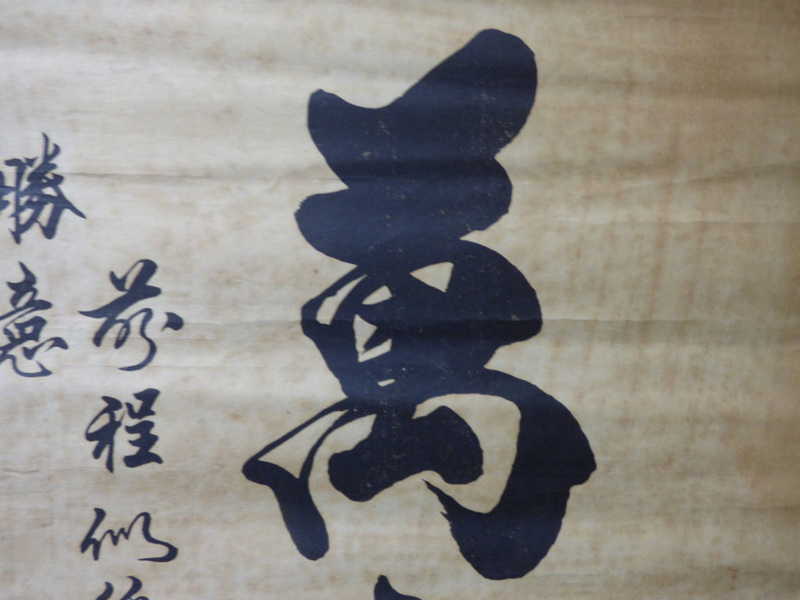 萬
前程似
勝意